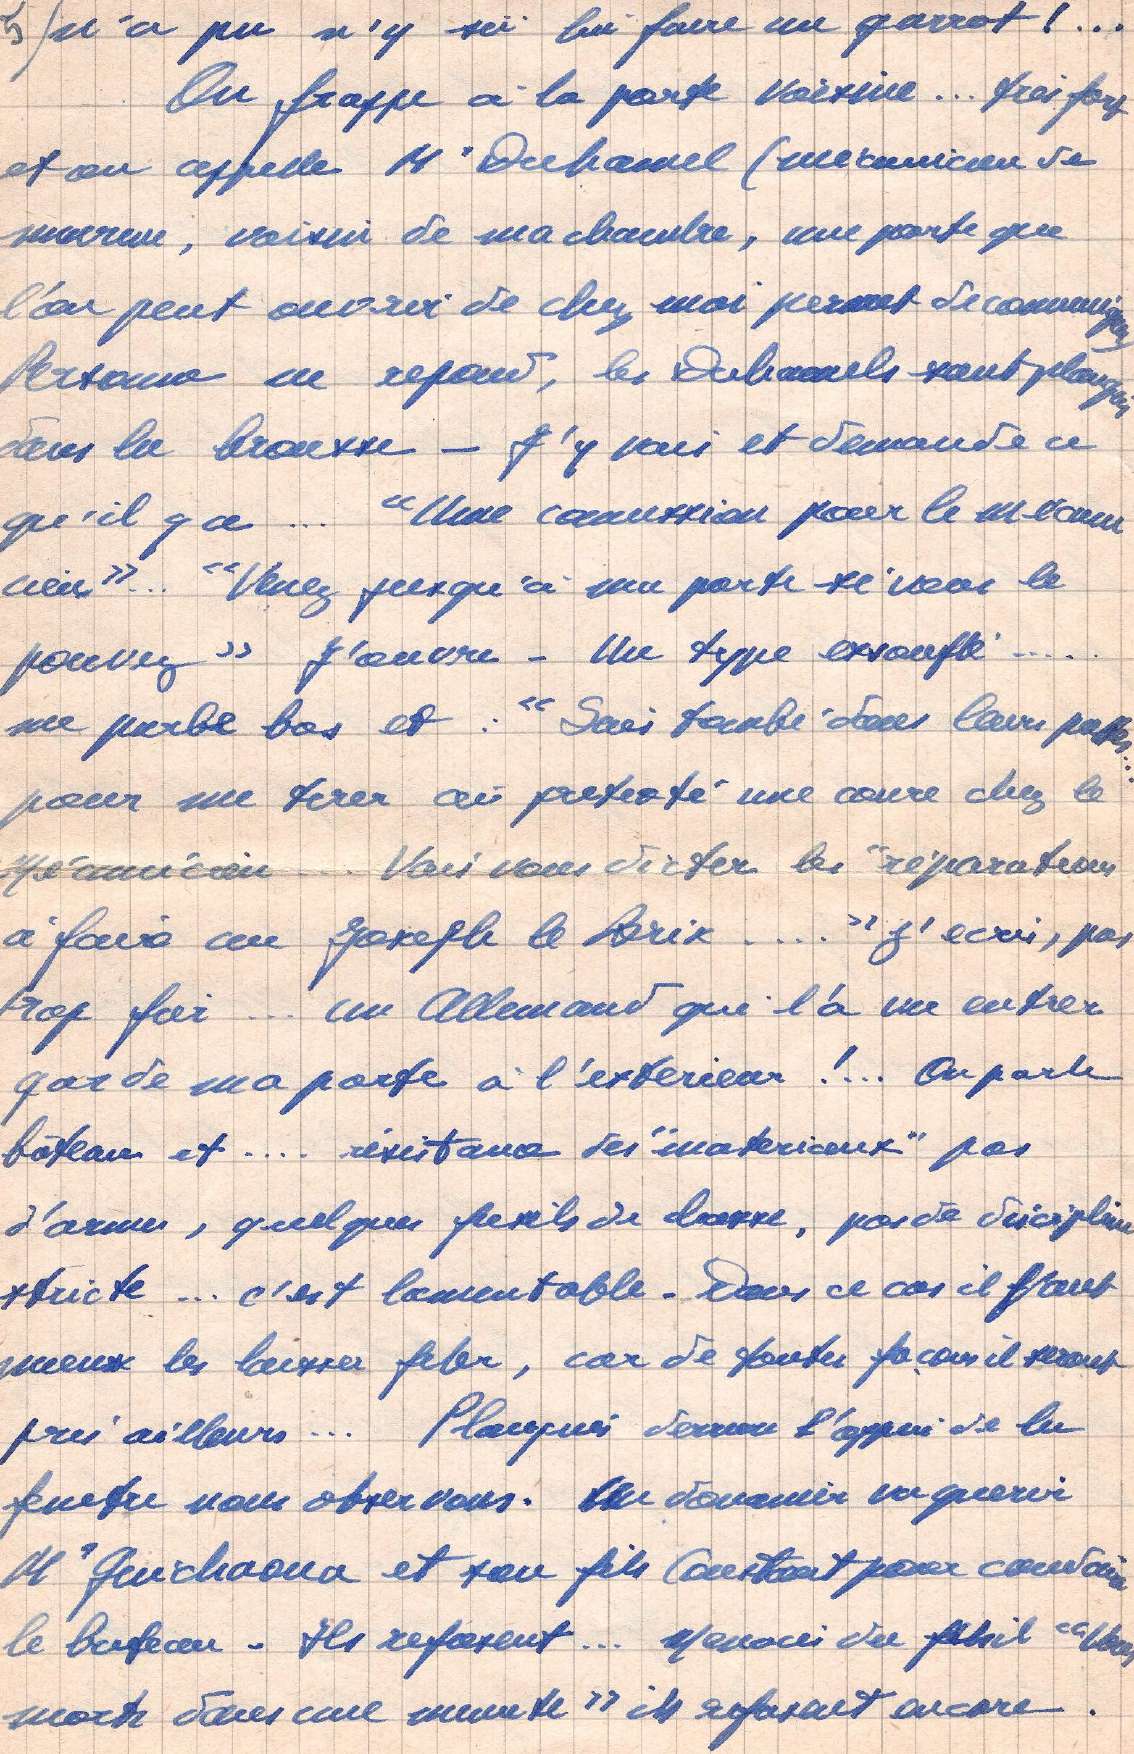 5/ n'a pu n'y su lui faire un garrot !...
On frappe à la porte voisine... très fort
et on appelle Mr Duhamel (mécanicien de
marine, voisin de ma chambre, une porte que
l'on peut ouvrir de chez moi permet de communiquer
Personne ne repond, les Duhamels sont planqués
dans la brousse - J'y vais et demande ce
qu'il y a ... "Une commission pour le mécani
cien"... "Venez jusqu'à ma porte si vous le
pouvez" J'ouvre - Un type essouflé .....
me parle bas et : "Suis tombé dans leurs pattes...
pour me tirer ai pretexté une course chez le
Mécanicien ... Vais vous dicter les "réparations
à faire au Joseph le Brix ...." J'ecris, pas
trop fier ... un Allemand qui l'a vu entrer
garde ma porte à l'exterieur !... On parle
bâteau et .... résistance des "materiaux" pas
d'armes, quelques fusils de chasse, pas de discipline
stricte ... c'est lamentable - Dans ce cas il faut
mieux les laisser filer, car de toutes façons il seront
pris ailleurs ... Planqués derrière l'appui de la
fenetre nous observons. Un douanier va querir
Mr Guichaoua et son fils Constant pour conduire
le bateau - Ils refusent ... Menacés du fusil "Vous
morts dans une minute" ils refusent encore.